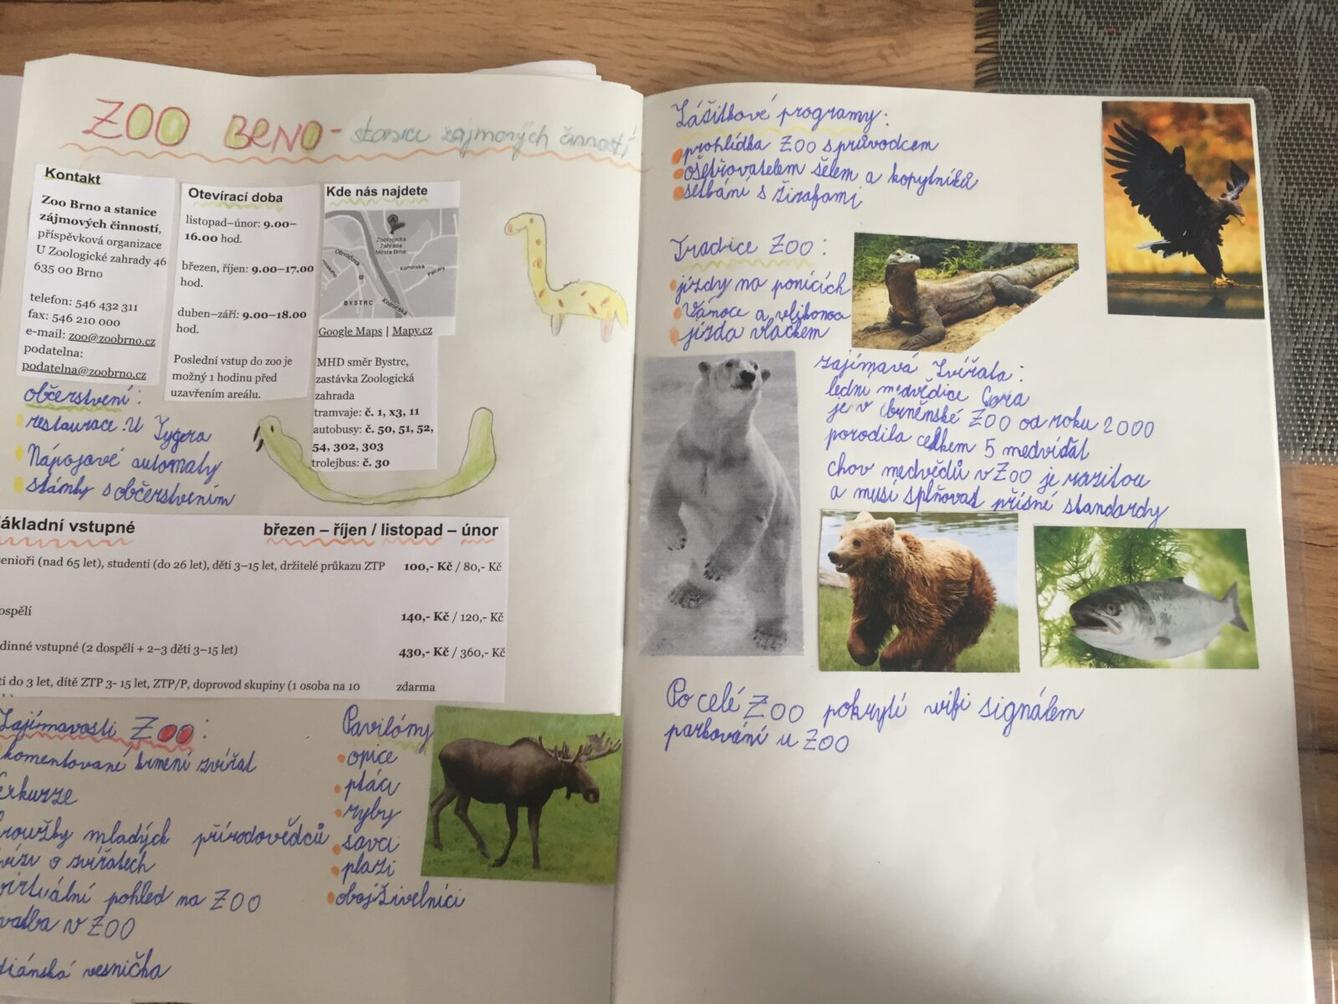 ZOO BRNO - stanice zájmových činností
Kontakt
Zoo Brno a stanice
zájmových činností,
příspěvková organizace
U Zoologické zahrady 46
635 00 Brno
telefon: 546 432 311
fax: 546 210 000
e-mail: zoo@zoobrno.cz
podatelna:
podatelna@zoobrno.cz
Otevírací doba
listopad–únor: 9.00–
16.00 hod.
březen, říjen: 9.00–17.00
hod.
duben–září: 9.00–18.00
hod.
Poslední vstup do zoo je
možný 1 hodinu před
uzavřením areálu.
Kde nás najdete
Zoologická
Zahrada
Města Brna
BYSTRC
Google Maps | Mapy.cz
MHD směr Bystrc,
zastávka Zoologická
zahrada
tramvaje: č. 1, x3, 11
autobusy: č. 50, 51, 52,
54, 302, 303
trolejbus: č. 30
občerstvení:
restaurace U Tygra
Nápojové automaty
stánky s občerstvením
ákladní vstupné březen – říjen / listopad – únor
enioři (nad 65 let), studenti (do 26 let), děti 3–15 let, držitelé průkazu ZTP 100,- Kč / 80,- Kč
ospělí 140,- Kč / 120,- Kč
dinné vstupné (2 dospělí + 2–3 děti 3–15 let) 430,- Kč / 360,- Kč
ti do 3 let, dítě ZTP 3- 15 let, ZTP/P, doprovod skupiny (1 osoba na 10 zdarma
Zajímavosti ZOO:
komentované krmení zvířat
exkurze
kroužky mladých přírodovědců
kvízy o zvířatech
virtuální pohled na ZOO
svatba v ZOO
diánská vesnička
Pavilóny
opice
ptáci
ryby
savci
plazi
obojživelníci
Zážitkové programy:
prohlídka ZOO s průvodcem
ošetřovatelem šelem a kopytníků
setkání s žirafami
Tradice ZOO:
jízdy na ponících
Vánoce a velikonoce
jízda vláčkem
zajímavá zvířata:
lední medvědice Cora
je v brněnské ZOO od roku 2000
porodila celkem 5 medvíďat
chov medvědů v ZOO je raritou
a musí splňovat přísné standardy
Po celé ZOO pokrytí wifi signálem
parkování u ZOO